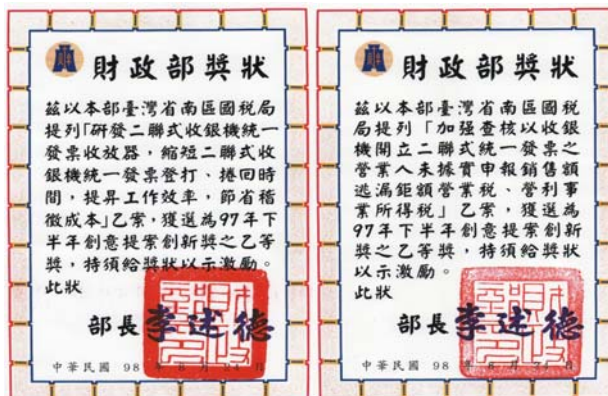 財政部獎狀
茲以本部臺灣省南區國稅局
提列「研發二聯式收銀機統一
發票收放器,縮短二聯式收
銀機統一發票登打、捲回時
間,提昇工作效率,節省稽
徵成本」乙案,獲選為97年下
半年創意提案創新獎之乙等
獎,特頒給獎狀以示激勵。
此狀
部長李述德
中華民國 98 年 8 月 24 日
財政部獎狀
茲以本部臺灣省南區國稅
局提列「加強查核以收銀
機開立二聯式統一發票之
營業人未據實申報銷售額
逃漏鉅額營業稅、營利事
業所得稅」乙案,獲選為
97年下半年創意提案創新
獎之乙等獎,特頒給獎狀
以示激勵。
此狀
部長李述德
中華民國 98 年 8 月 24 日